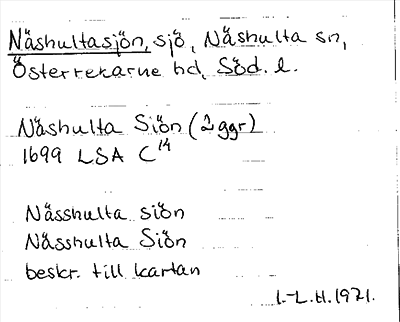 Näshultasjön, sjö, Näshulta sn,
Österrekarne hd, Söd. l.
Näshulta Siön (2 ggr)
1699 LSA C 14
Nässhulta siön
Nässhulta Siön
beskr. till kartan
I.-L.H. 1971.